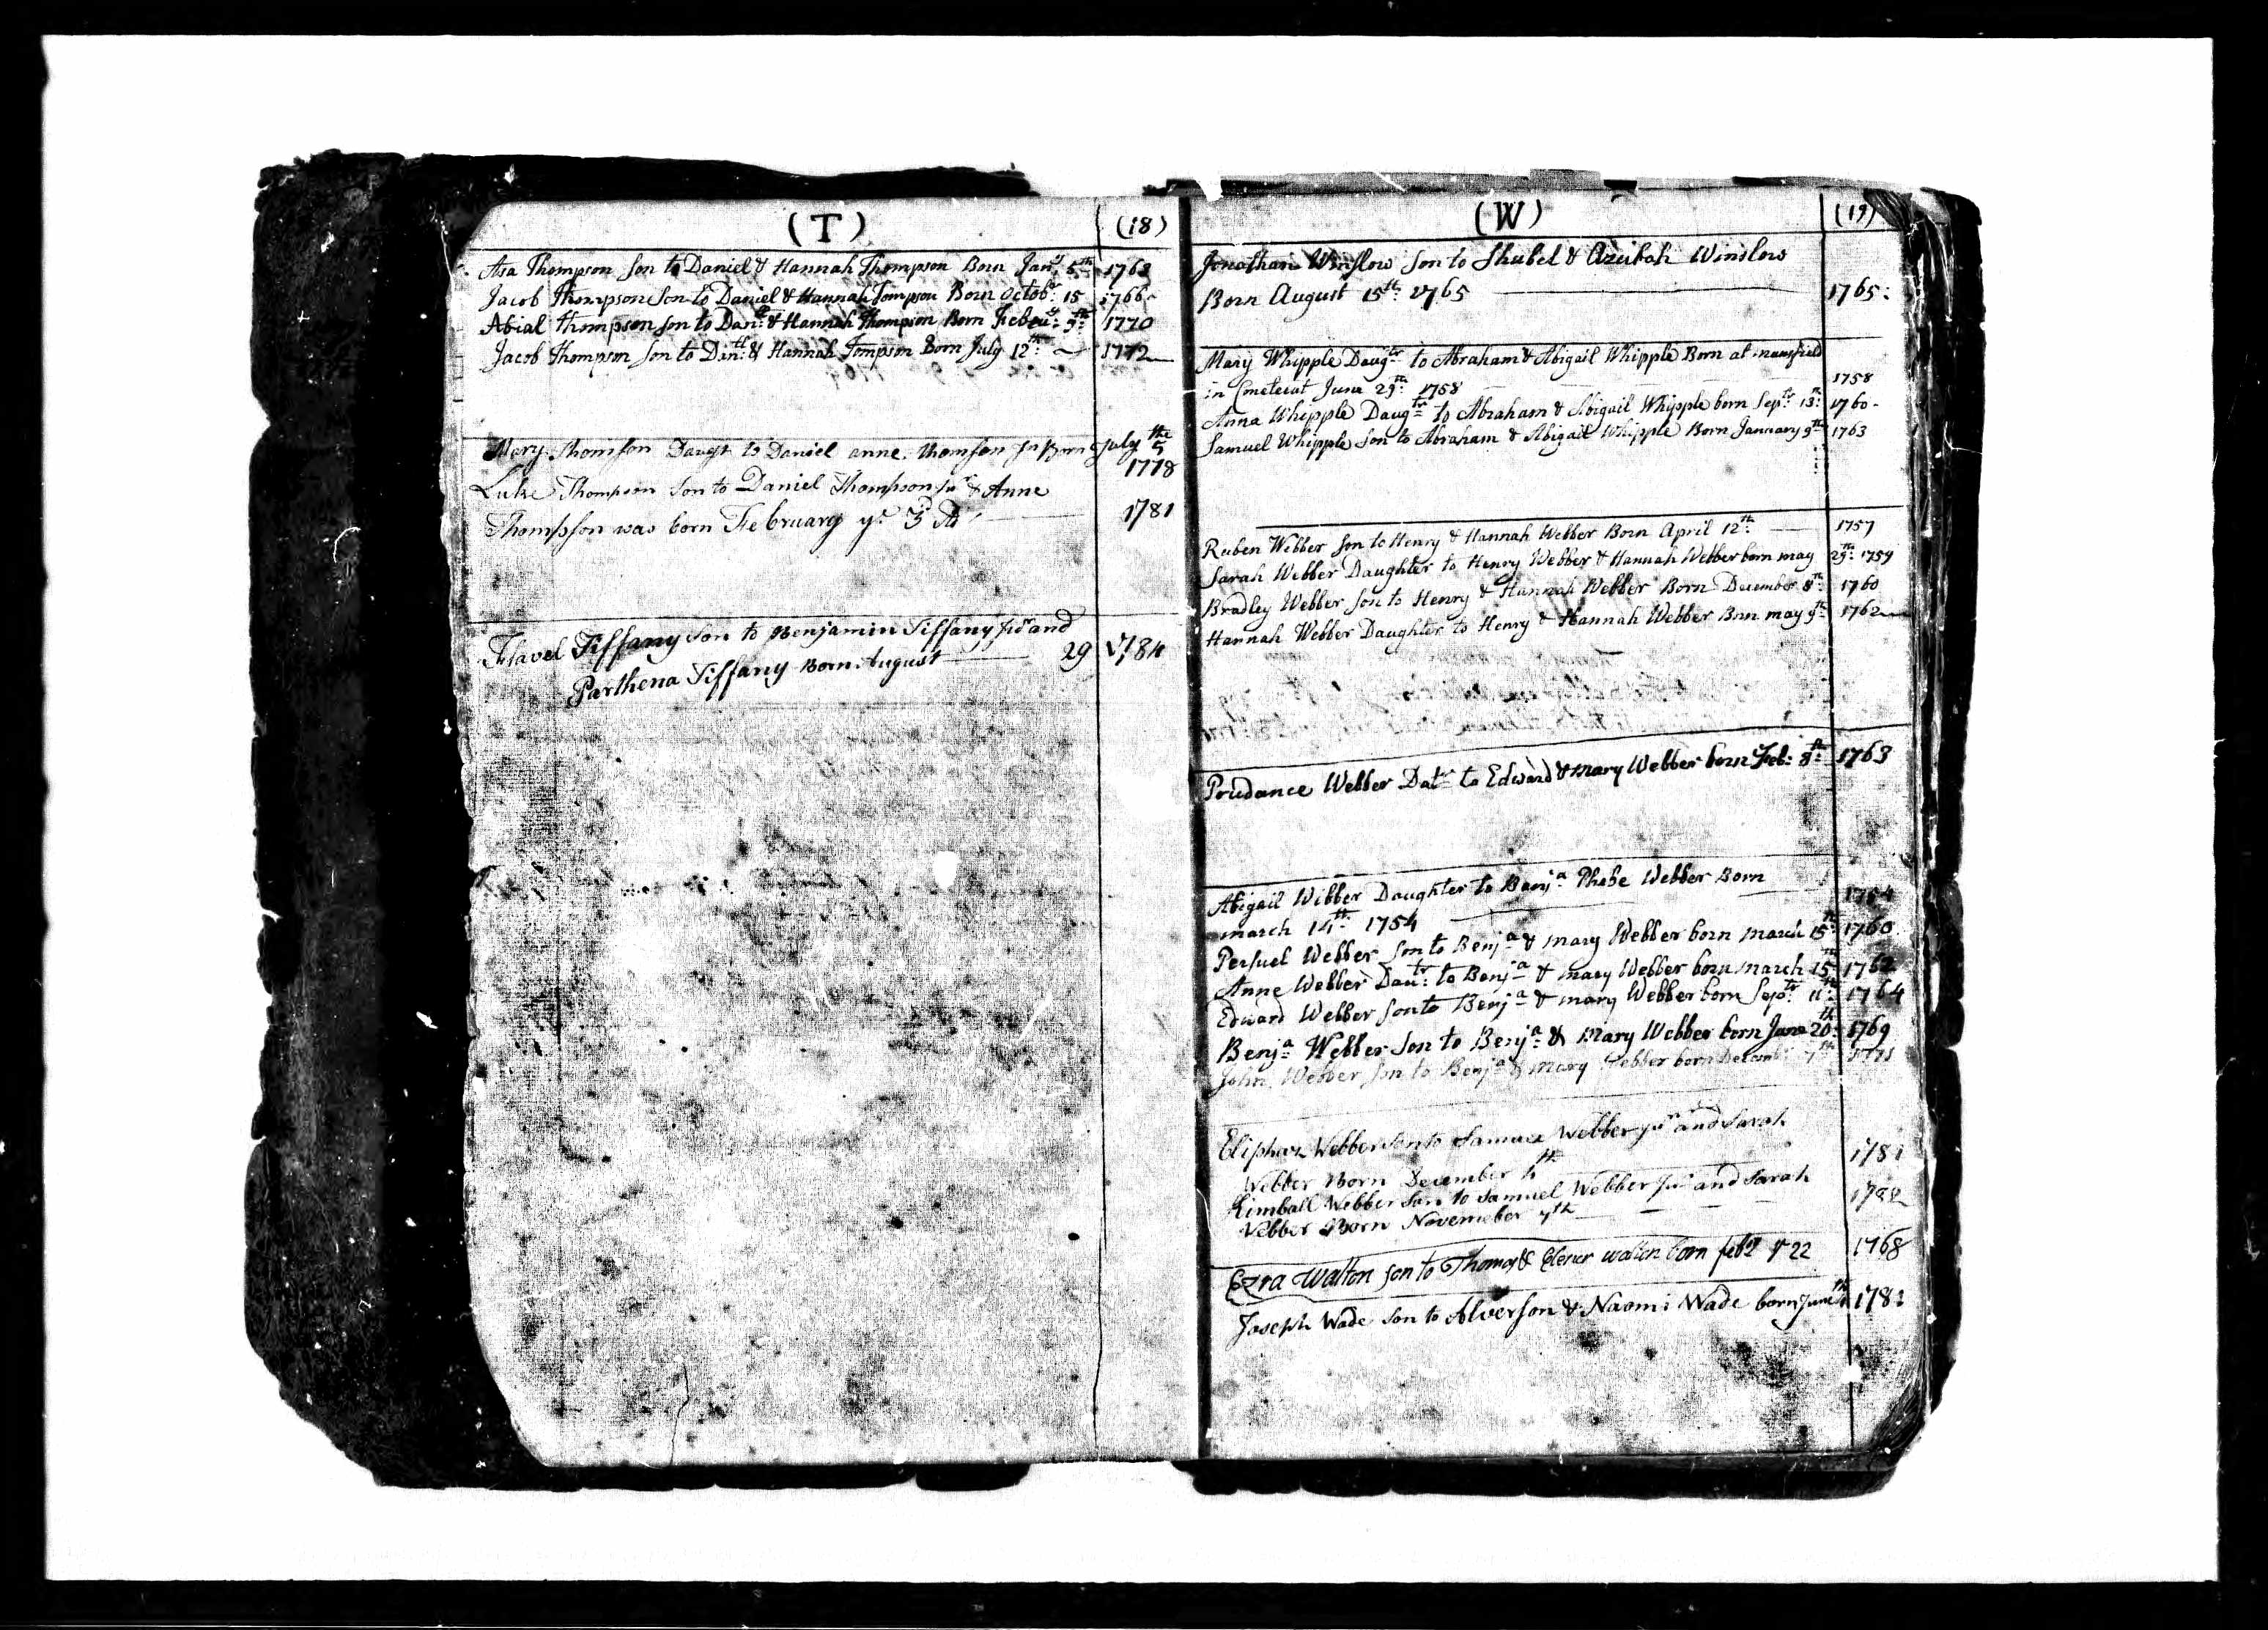 (T) (18)
Asa Thompson Son to Daniel & Hannah Thompson Born Janʸ 5ᵗʰ 1763
Jacob Thompson Son to Daniel & Hannah Tompson Born Octobʳ 15 1766
Abial Thompson son to Danˡˡ & Hannah Thompson Born Febru: 9ᵗʰ 1770
Jacob Thompson son to Danˡˡ & Hannah Tompson Born July 12ᵗʰ 1772
Mary Thomson Daugt to Daniel anne Thomson Jr Born July the 5
1778
Luke Thompson Son to Daniel Thompson juʳ & Anne
Thompson was born February yᵉ 3 1781
Flavel Tiffany Son to Benjamin Tiffany and
Parthena Tiffany Born August 29 1784
(W) (19)
Jonathan Winslow Son to Shubel & Azubah Winslow
Born August 15ᵗʰ 1765 1765
Mary Whipple Daugᵗʳ to Abraham & Abigail Whipple Born at mansfield
in June 29ᵗʰ 1758 1758
Anna Whipple Daugᵗʳ to Abraham & Abigail Whipple born Sepᵗʳ 13ᵗʰ 1760
Samuel Whipple Son to Abraham & Abigail Whipple Born January 9ᵗʰ 1763
Ruben Webber Son to Henry & Hannah Webber Born April 12ᵗʰ 1757
Sarah Webber Daughter to Henry Webber & Hannah Webber born may 29ᵗʰ 1759
Bradley Webber Son to Henry & Hannah Webber Born December 8ᵗʰ 1760
Hannah Webber Daughter to Henry & Hannah Webber Brn may 9ᵗʰ 1762
Prudance Webber Datʳ to Edward & Mary Webber born Feb: 8ᵗʰ 1763
Abigail Wibber Daughter to Benjᵃ Phebe Webber Born
march 14ᵗʰ 1754 1754
Webber Son to Benjᵃ & mary Webber born march 15ᵗʰ 1760
Anne Webber Dauᵗʳ to Benjᵃ & mary Webber born march 15ᵗʰ 1762
Edward Webber Son to Benjᵃ & mary Webber born Sepᵗʳ 11ᵗʰ 1764
Benjᵃ Webber Son to Benjᵃ & Mary Webber born June 20ᵗʰ 1769
John Webber Son to Benjᵃ & mary Webber born Decembʳ 7ᵗʰ
Webber Son to Samuel Webber juʳ and Sarah
Webber Born December 4ᵗʰ 1781
Kimball Webber Son to Samuel Webber Juʳ and Sarah
Webber Born November 7ᵗʰ
Ezra Walton son to Thomas & walton born 22 1768
Joseph Wade Son to Alverson & Naomi Wade born June